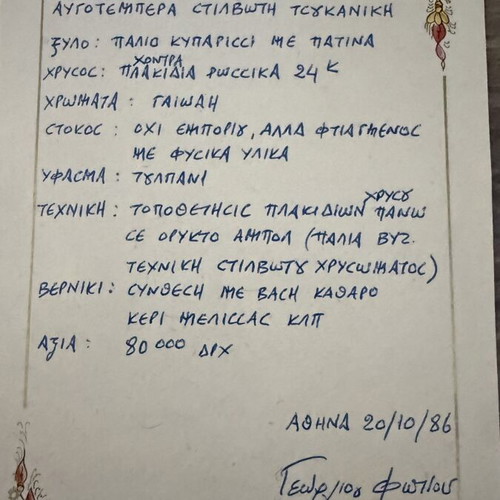 ΑΥΓΟΤΕΜΠΕΡΑ ΣΤΙΛΒΩΤΗ ΤΣΟΥΚΑΝΙΚΗ
ΞΥΛΟ: ΠΑΛΙΟ ΚΥΠΑΡΙΣΣΙ ΜΕ ΠΑΤΙΝΑ
ΧΡΥΣΟΣ: ΧΟΝΤΡΑ ΠΛΑΚΙΔΙΑ ΡΩΣΣΙΚΑ 24 Κ
ΧΡΩΜΑΤΑ: ΓΑΙΩΔΗ
ΣΤΟΚΟΣ: ΟΧΙ ΕΜΠΟΡΙΟΥ, ΑΛΛΑ ΦΤΙΑΓΜΕΝΟΣ
ΜΕ ΦΥΣΙΚΑ ΥΛΙΚΑ
ΥΦΑΣΜΑ: ΤΟΥΛΠΑΝΙ
ΤΕΧΝΙΚΗ: ΤΟΠΟΘΕΤΗΣΙΣ ΠΛΑΚΙΔΙΩΝ ΧΡΥΣΟΥ ΠΑΝΩ
ΣΕ ΟΡΥΚΤΟ ΑΜΠΟΛ (ΠΑΛΙΑ ΒΥΖ.
ΤΕΧΝΙΚΗ ΣΤΙΛΒΩΤΟΥ ΧΡΥΣΩΜΑΤΟΣ)
ΒΕΡΝΙΚΙ: ΣΥΝΘΕΣΗ ΜΕ ΒΑΣΗ ΚΑΘΑΡΟ
ΚΕΡΙ ΜΕΛΙΣΣΑΣ ΚΛΠ
ΑΞΙΑ: 80000 ΔΡΧ
ΑΘΗΝΑ 20/10/86
Γεωργίου Φωτίου